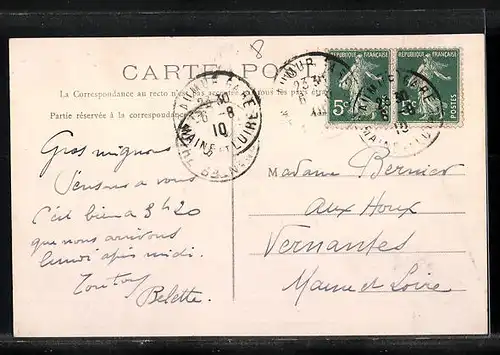 8
CARTE POSTALE
La Correspondance au recto n'est pas acceptée
par tous les pays étrangers
Partie réservée à la correspondance
RÉPUBLIQUE FRANÇAISE RÉPUBLIQUE FRANÇAISE
5c POSTES
GARE
22 30
6 -8
10
MAINE ET LOIRE
Gros mignons
Pensons a vous
C'est bien a 3h20
que nous arrivons
lundi après midi.
Toutou
Belette
Madame Bernier
Aux Houx
Vernantes
Maine et Loire